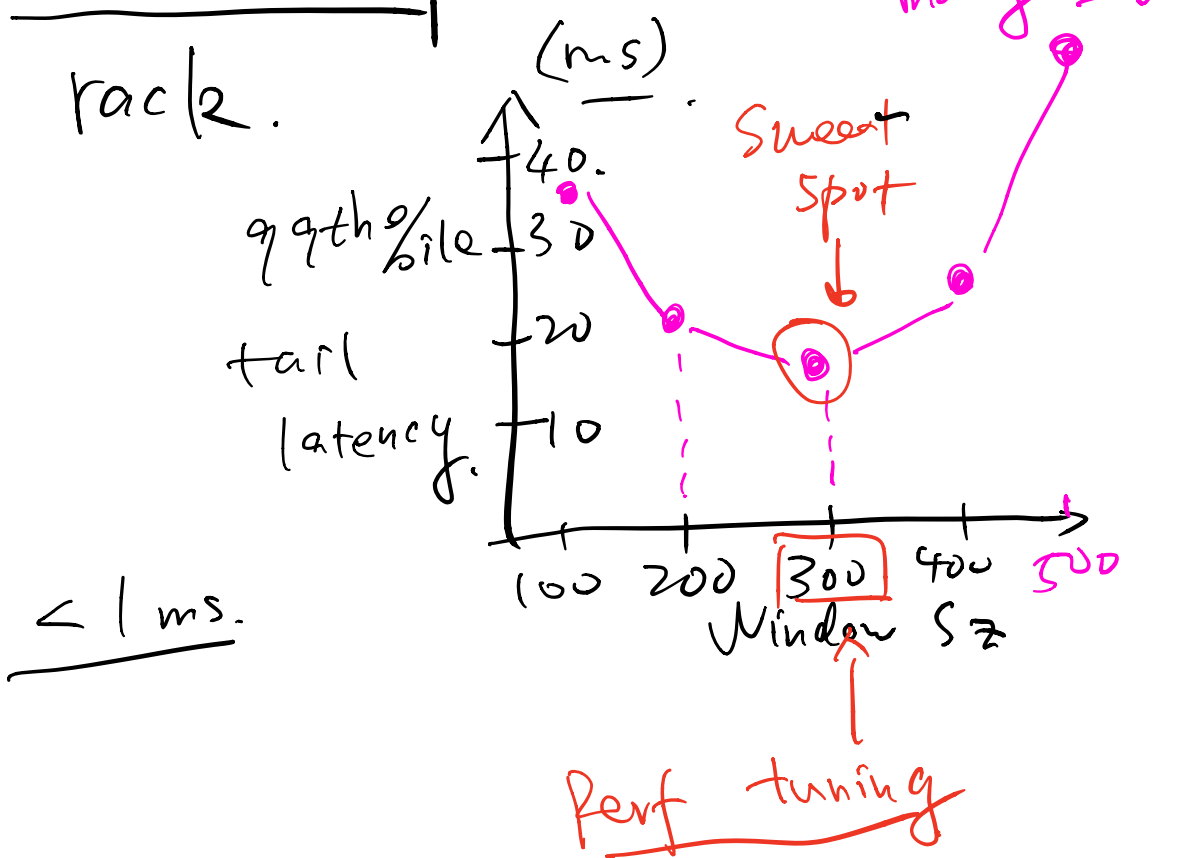 (ms).
rack.
Sweet
spot
40.
99th %ile
30
tail
20
latency.
10
100 200 300 400 500
Window Sz
< 1 ms.
Perf tuning